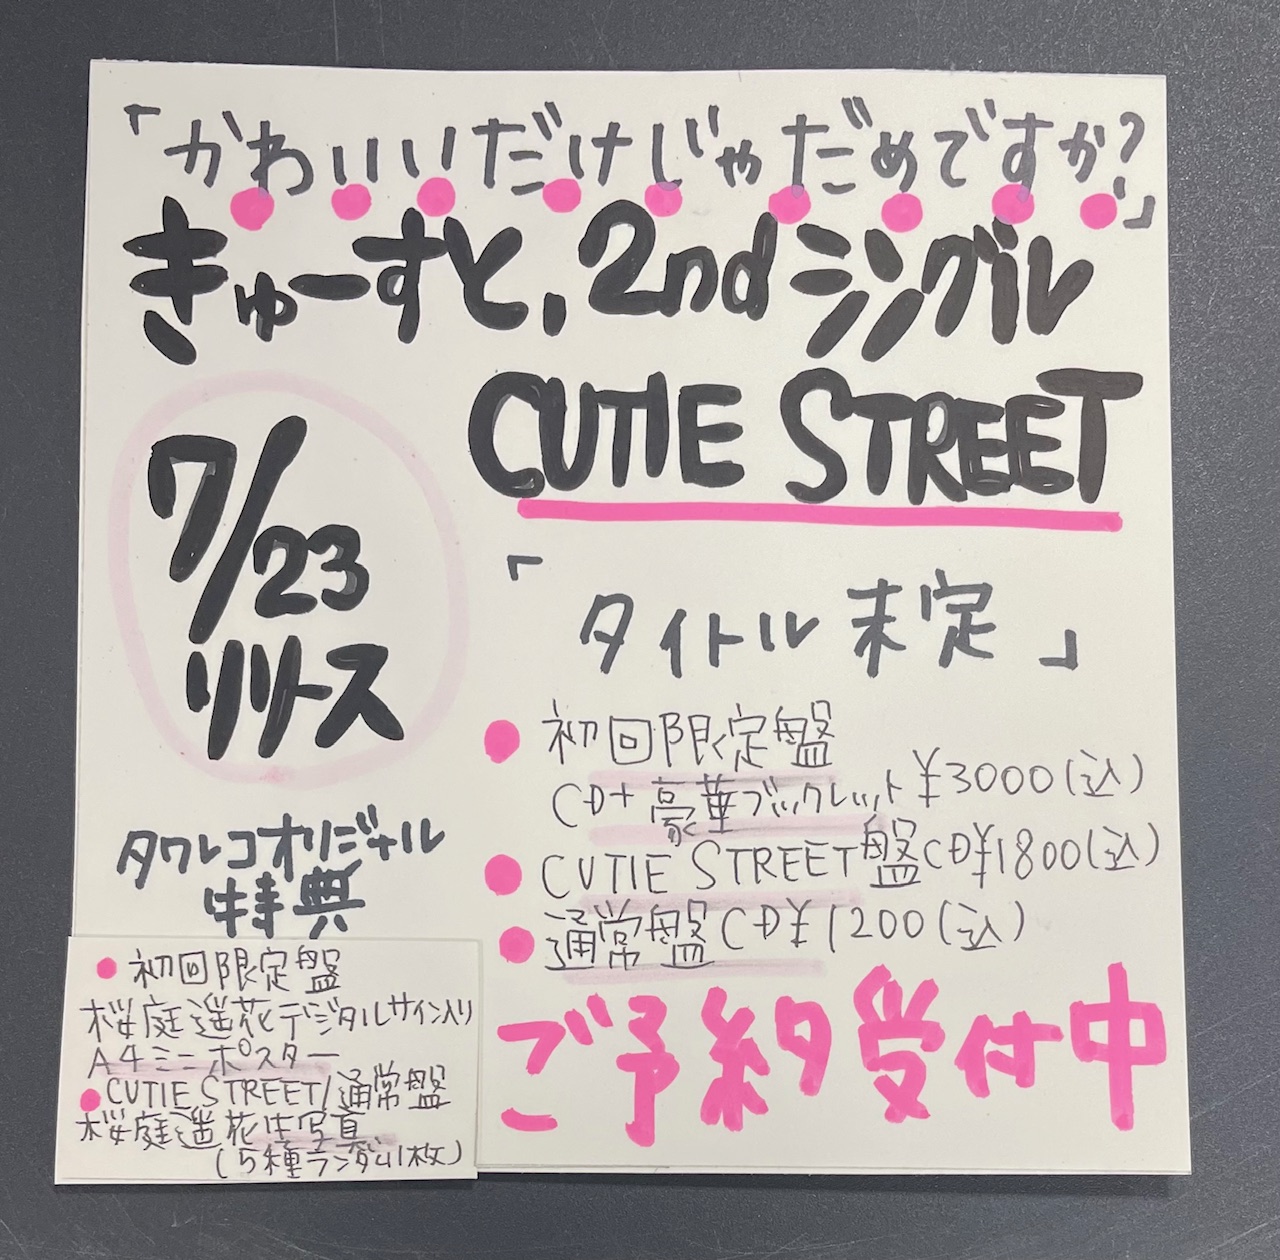 「かわいいだけじゃだめですか?」
きゅーすと、2ndシングル
CUTIE STREET
7/23
リリース
「タイトル未定」
●初回限定盤
CD+豪華ブックレット¥3000(込)
●CUTIE STREET盤CD¥1800(込)
●通常盤CD¥1200(込)
ご予約受付中
タワレコオリジナル
特典
●初回限定盤
桜庭遥花デジタルサイン入り
A4ミニポスター
●CUTIE STREET/通常盤
桜庭遥花生写真
(5種ランダム1枚)